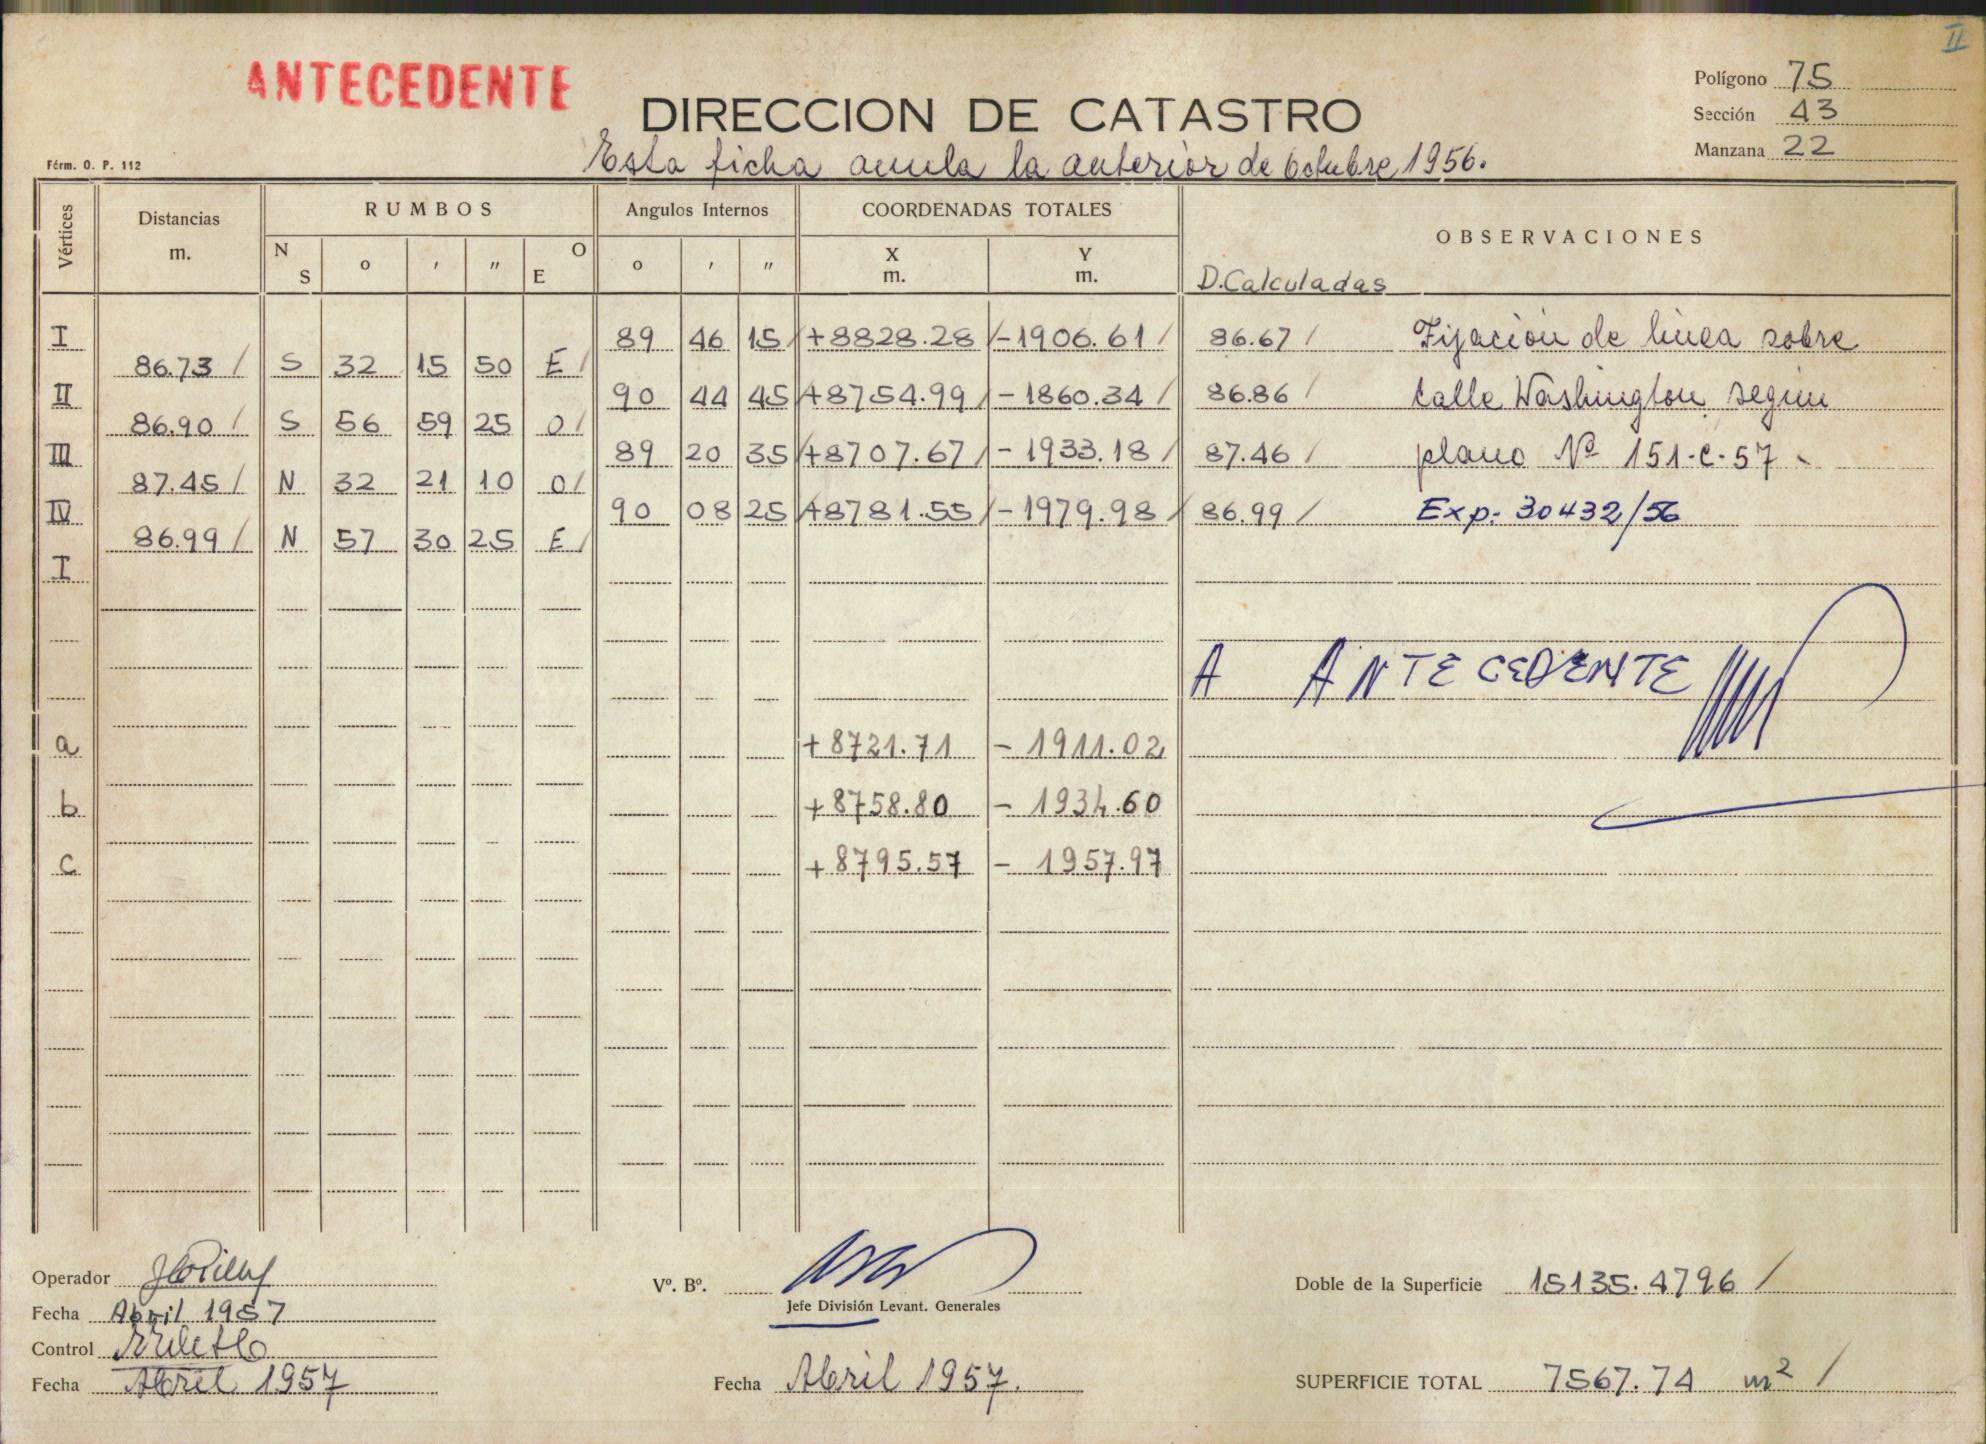 II
ANTECEDENTE
DIRECCION DE CATASTRO
Polígono 75
Sección 43
Manzana 22
Férm. O. P. 112
Esta ficha anula la anterior de Octubre 1956.
Vértices
Distancias
m.
RUMBOS
N S ° ' " E O
Angulos Internos
° ' "
COORDENADAS TOTALES
X
m.
Y
m.
OBSERVACIONES
D.Calculadas
I 89 46 15 / +8828.28 / -1906.61 / 86.67 / Fijación de linea sobre
86.73 / S 32 15 50 E /
II 90 44 45 / +8754.99 / -1860.34 / 86.86 / Calle Washington según
86.90 / S 56 59 25 O /
III 89 20 35 / +8707.67 / -1933.18 / 87.46 / plano Nº 151-C-57 -
87.45 / N 32 21 10 O /
IV 90 08 25 / +8781.55 / -1979.98 / 86.99 / Exp. 30432/56
86.99 / N 57 30 25 E /
I
A ANTECEDENTE
a +8721.71 - 1911.02
b +8758.80 - 1934.60
c +8795.57 - 1957.97
Operador
Fecha Abril 1957
Control
Fecha Abril 1957
Vº. Bº.
Jefe División Levant. Generales
Fecha Abril 1957.
Doble de la Superficie 15135.4796 /
SUPERFICIE TOTAL 7567.74 m² /